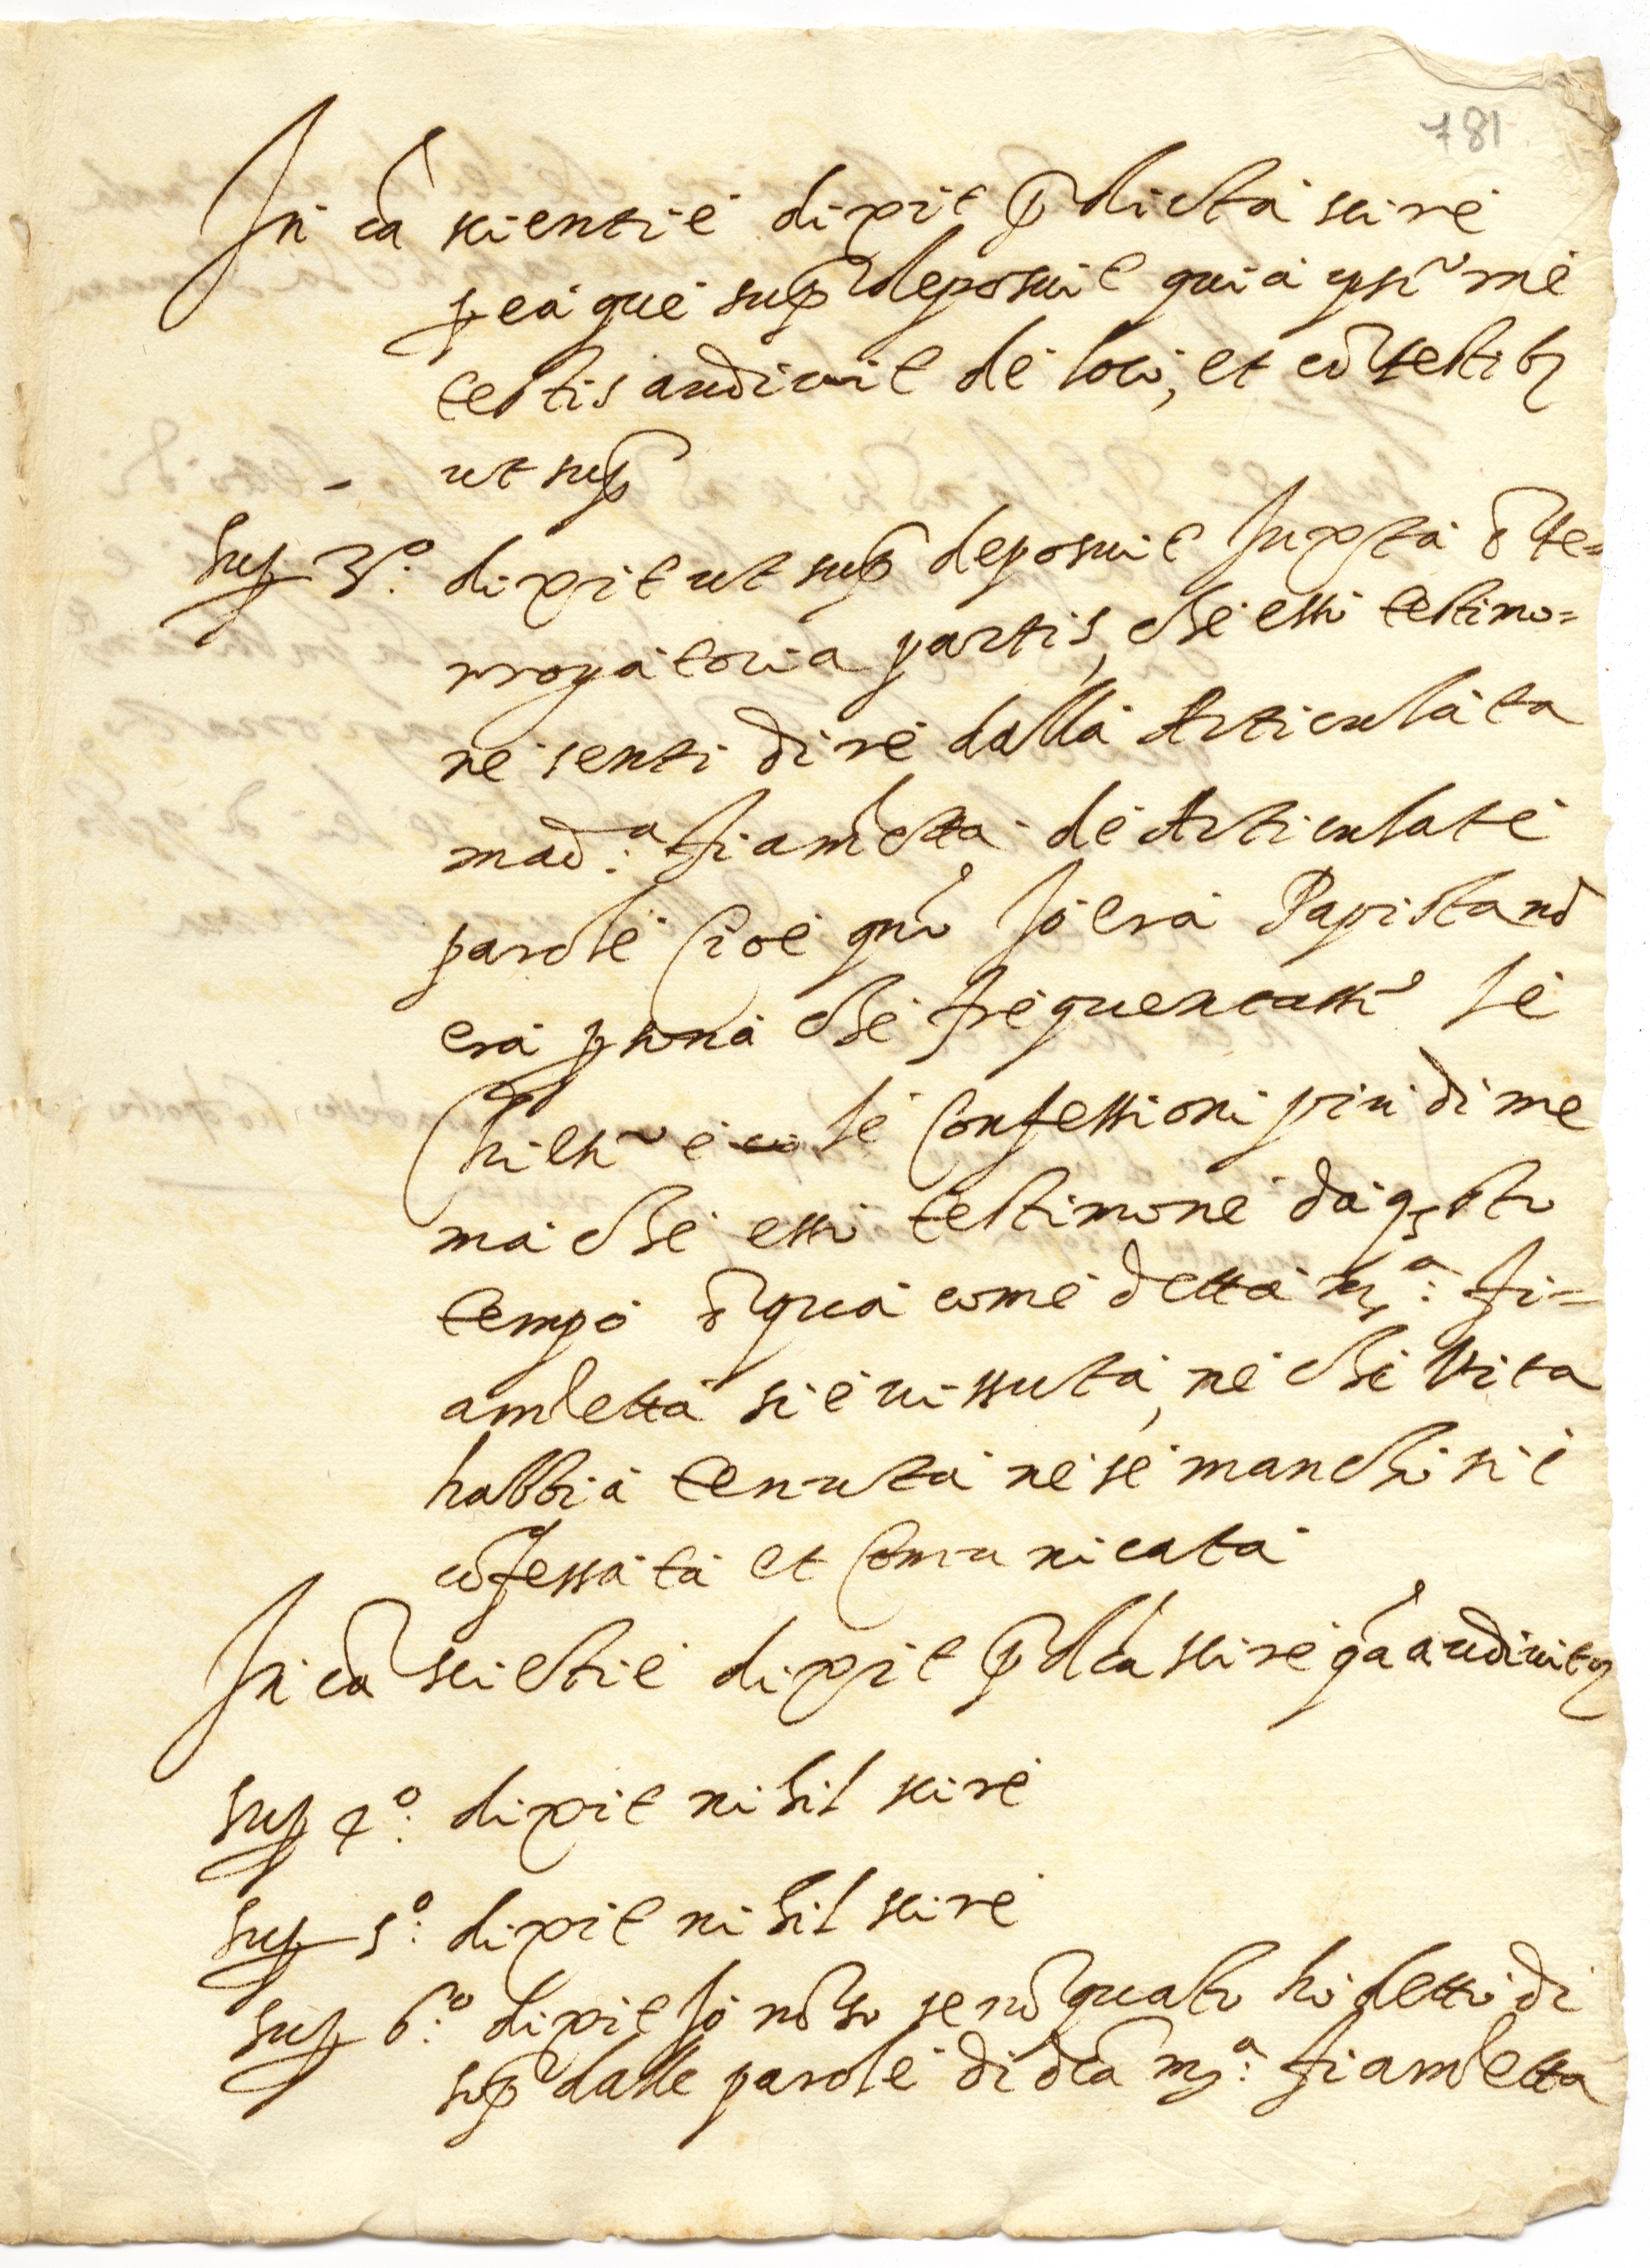 781
In cā scientie dixit p̄dicta scire
ꝑ ea que sup̄ deposuit quia ipsem̄e
testis audivit de loco, et cō testibꝫ
- ut sup̄
Suꝑ 3.º dixit ut sup̄ deposuit Juxta Ite=
rrogatoria partis, che esso testimo=
ne senti dire dalla Articulata
mad.ª fiametta de Articulate
parole Cioe qn̄ Jo era Papista nō
era ꝑsona che frequentassi le
Chiese e le Confessioni piu di me
ma che esso testimone da qsto
tempo ī qua come detta m.ª fi=
ambetta si e vissuta, ne che vita
habbia tenuta ne se mancho si e
cōfessata et Comunicata
In cā sciētie dixit p̄dca scire qa audivit
Suꝑ 4.º dixit nihil scire
Suꝑ 5.º dixit nihil scire
Suꝑ 6.º dixit Jo nō so se nō quāto ho detto di
sop̄ dalle parole di dcā m.ª fiambetta